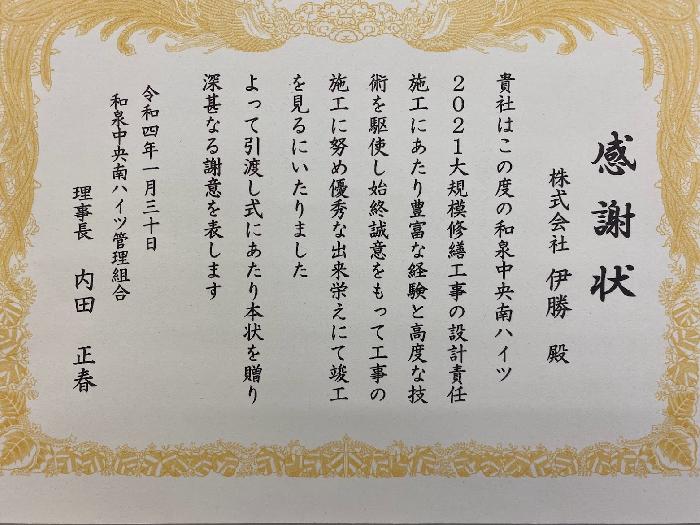 感謝状
株式会社 伊勝 殿
貴社はこの度の和泉中央南ハイツ
2021大規模修繕工事の設計責任
施工にあたり豊富な経験と高度な技
術を駆使し始終誠意をもって工事の
施工に努め優秀な出来栄えにて竣工
を見るにいたりました
よって引渡し式にあたり本状を贈り
深甚なる謝意を表します
令和四年一月三十日
和泉中央南ハイツ管理組合
理事長 内田 正春